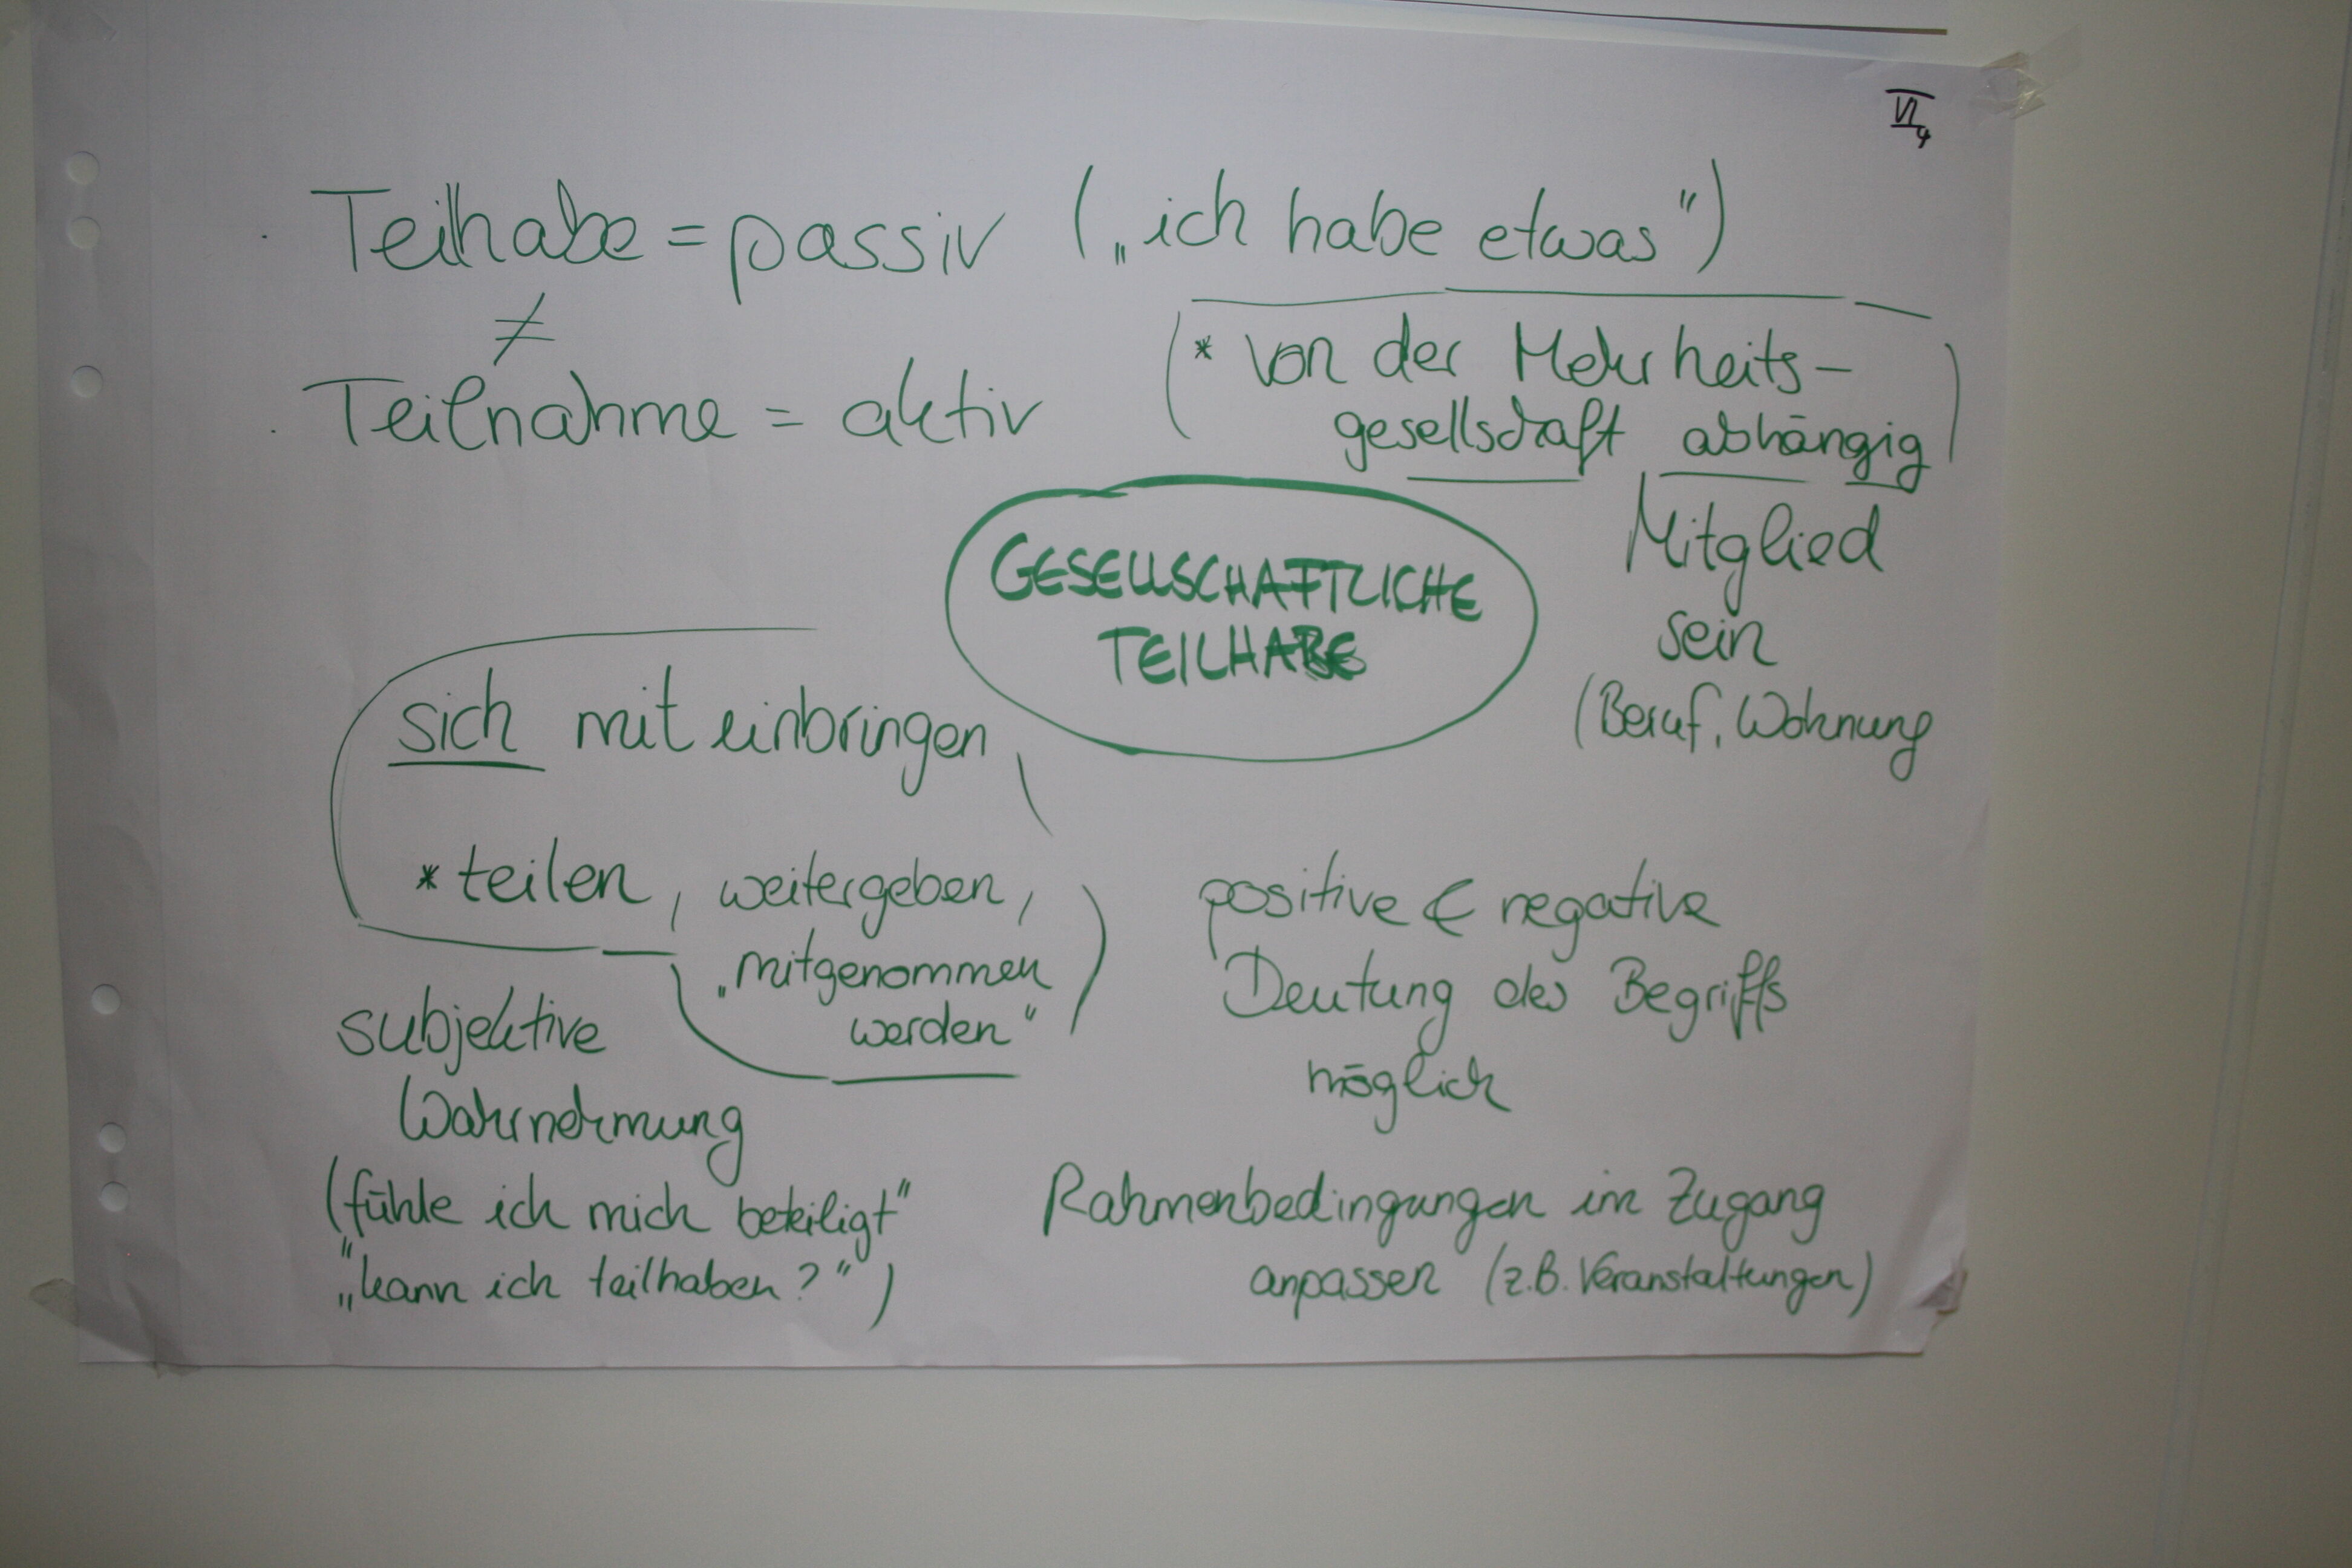 VI4
Teilhabe = passiv („ich habe etwas“)
≠
Teilnahme = aktiv
* von der Mehrheits-
gesellschaft abhängig
GESELLSCHAFTLICHE
TEILHABE
Mitglied
sein
(Beruf, Wohnung
sich mit einbringen
* teilen, weitergeben,
„mitgenommen
werden“
positive & negative
Deutung des Begriffs
möglich
subjektive
Wahrnehmung
(fühle ich mich beteiligt“
„kann ich teilhaben?“)
Rahmenbedingungen im Zugang
anpassen (z.B. Veranstaltungen)